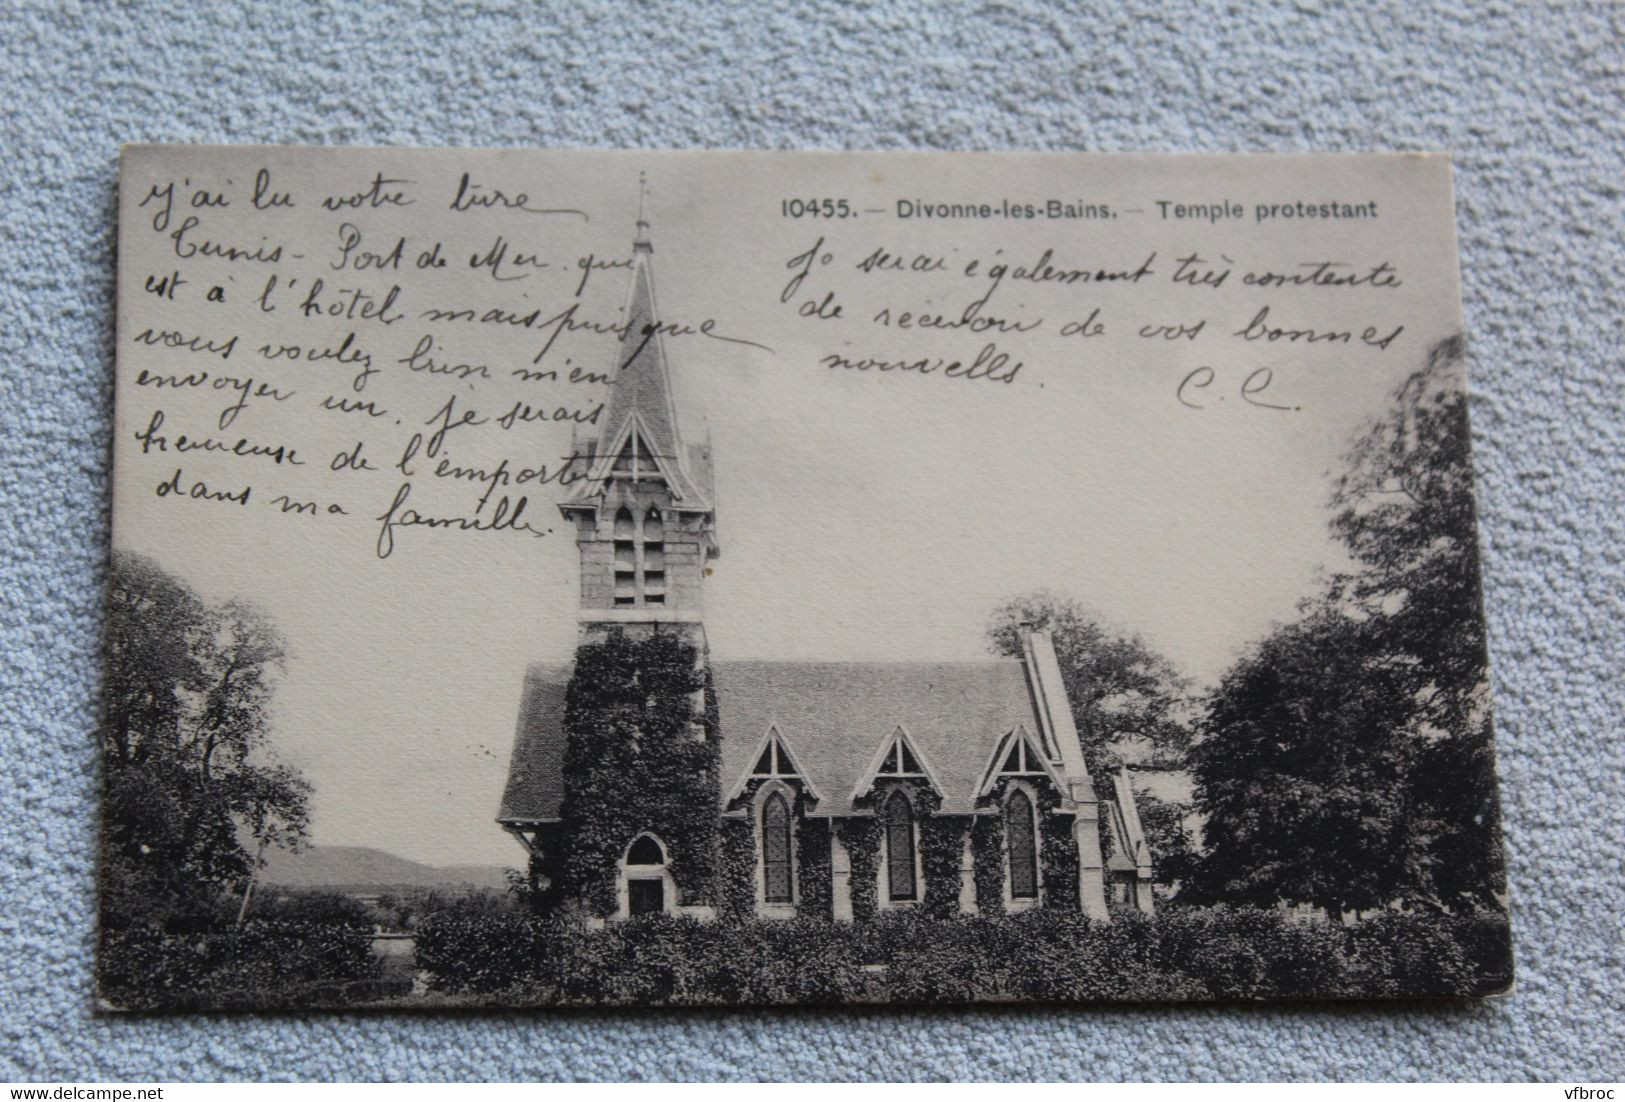 j'ai lu votre livre
Tunis - Port de Mer. qui
est à l'hôtel mais puisque
vous voulez bien m'en
envoyer un. je serais
heureuse de l'emporter
dans ma famille.
10455. — Divonne-les-Bains. — Temple protestant
Je serai également très contente
de recevoir de vos bonnes
nouvelles.
C. C.
vfbroc
delcampe.net